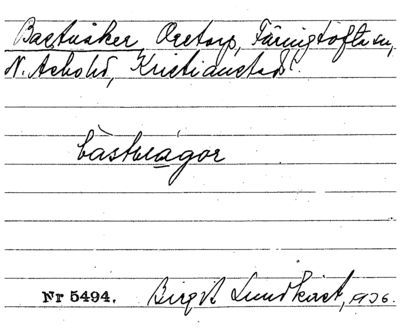 Bastuåker, Oretorp, Färingtofta sn,
N. Åsbohd, Kristianstads l.
bàstuágor
Nr 5494. Birgit Lundkvist, 1936.